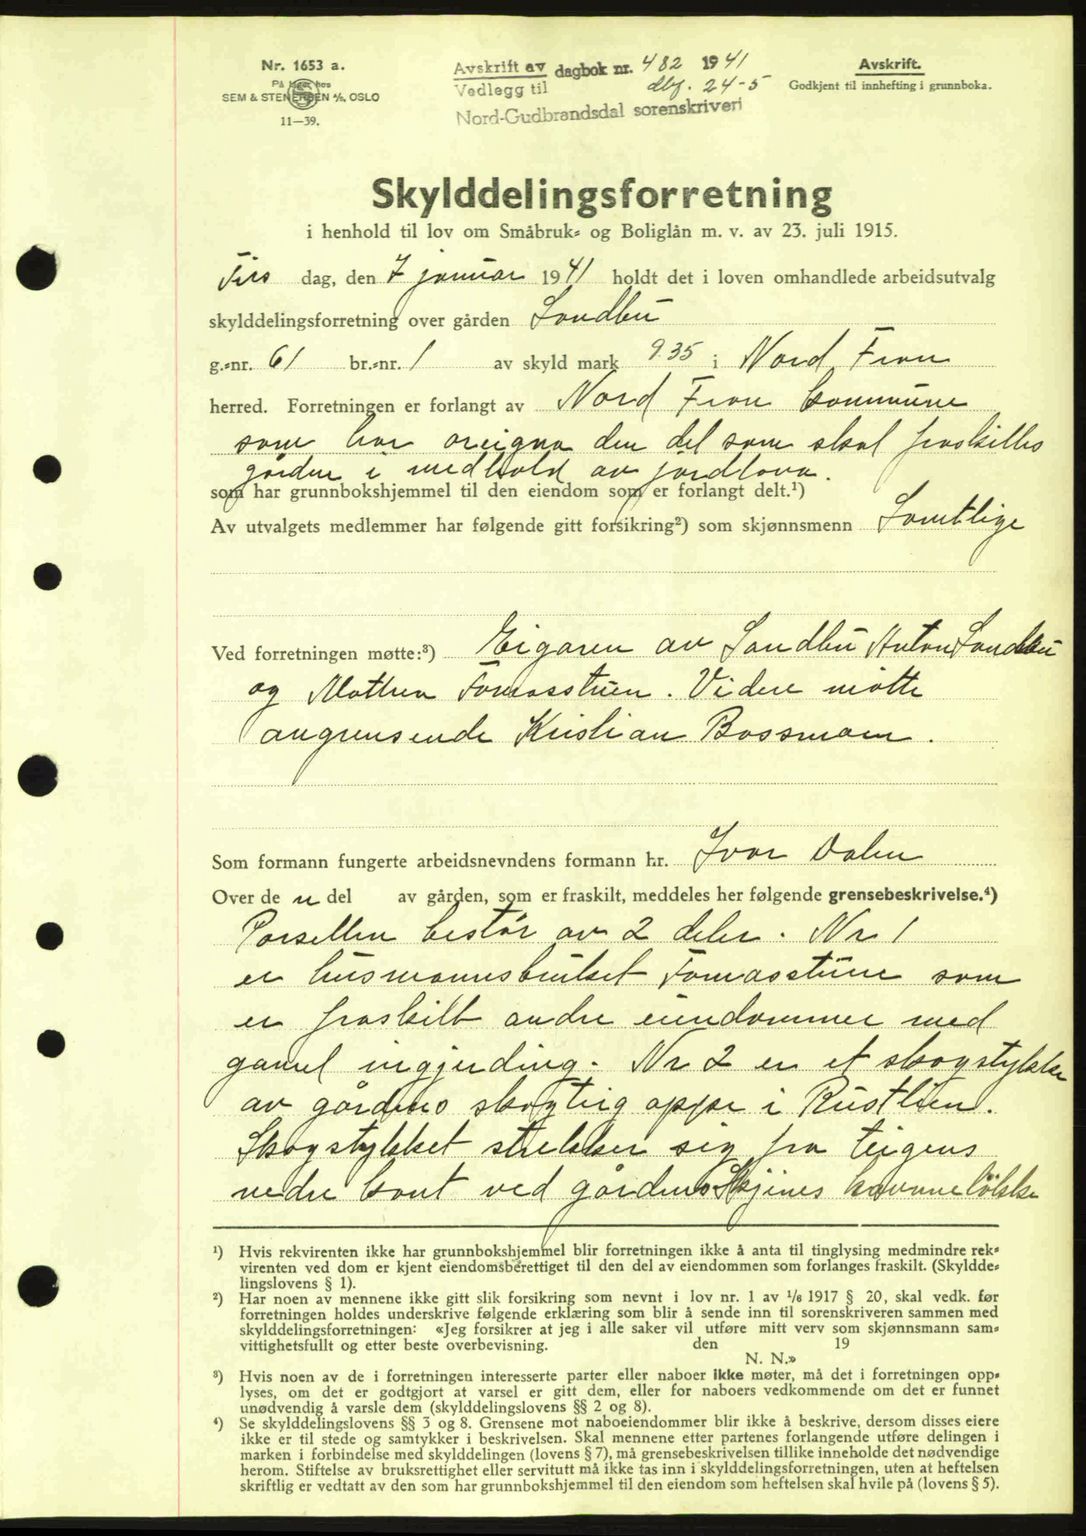 Nr. 1653 a.
På lager hos
SEM & STENERSEN A/S, OSLO
11—39.
Avskrift av dagbok nr. 482 1941
Vedlegg til dbf. 24-5
Nord-Gudbrandsdal sorenskriveri
Avskrift.
Godkjent til innhefting i grunnboka.
Skylddelingsforretning
i henhold til lov om Småbruk- og Boliglån m. v. av 23. juli 1915.
Tirs dag, den 7 januar 1941 holdt det i loven omhandlede arbeidsutvalg
skylddelingsforretning over gården Sandbu
g.-nr. 61 br.-nr. 1 av skyld mark 9.35 i Nord Fron
herred. Forretningen er forlangt av Nord Fron kommune
som har oreigna den del som skal fraskilles
gården i medhold av jordlova.
som har grunnbokshjemmel til den eiendom som er forlangt delt.¹)
Av utvalgets medlemmer har følgende gitt forsikring²) som skjønnsmenn Samtlige
Ved forretningen møtte:³) Eigaren av Sandbu Anton Sandbu
og Mathea Tomasstuen. Videre møtte
angrensende Kristian Bossmoen.
Som formann fungerte arbeidsnevndens formann hr. Ivar Dalen
Over de n del av gården, som er fraskilt, meddeles her følgende grensebeskrivelse.⁴)
Parsellen består av 2 deler. Nr 1
er husmannsbruket Tomasstuen som
er fraskilt andre eiendommer med
gamel ingjerding. Nr 2 er et skogstykke
av gårdens skogteig oppe i Rustlien.
Skogstykket strekker sig fra teigens
nedre kant ved gårdens havnneløkke
¹) Hvis rekvirenten ikke har grunnbokshjemmel blir forretningen ikke å anta til tinglysing medmindre rek-
virenten ved dom er kjent eiendomsberettiget til den del av eiendommen som forlanges fraskilt. (Skyldde-
lingslovens § 1).
²) Har noen av mennene ikke gitt slik forsikring som nevnt i lov nr. 1 av ¹/₆ 1917 § 20, skal vedk. før
forretningen holdes underskrive følgende erklæring som blir å sende inn til sorenskriveren sammen med
skylddelingsforretningen: «Jeg forsikrer at jeg i alle saker vil utføre mitt verv som skjønnsmann sam-
vittighetsfullt og etter beste overbevisning. den 19
N. N.»
³) Hvis noen av de i forretningen interesserte parter eller naboer ikke møter, må det i forretningen opp-
lyses, om det er godtgjort at varsel er gitt dem, eller for naboers vedkommende om det er funnet
unødvendig å varsle dem (skylddelingslovens §§ 2 og 8).
⁴) Se skylddelingslovens §§ 3 og 8. Grensene mot naboeiendommer blir ikke å beskrive, dersom disses eiere
ikke er til stede og samtykker i beskrivelsen. Skal mennene etter partenes forlangende utføre delingen i
marken i forbindelse med skylddelingen (lovens § 7), må grensebeskrivelsen tillike inneholde det nødvendige
herom. Stiftelse av bruksrettighet eller servitutt må ikke tas inn i skylddelingsforretningen, uten at heftelsen
skriftlig er vedtatt av den som har grunnbokshjemmel til den eiendom som heftelsen skal hvile på (lovens § 5).